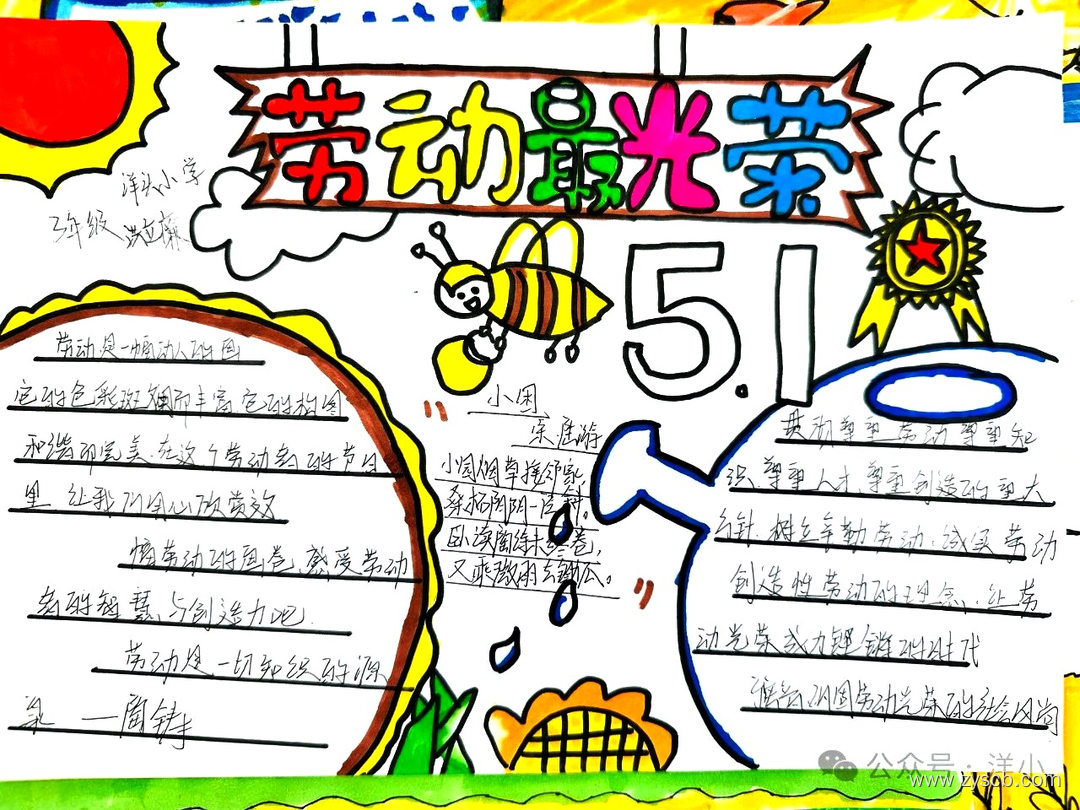 劳动最光荣
洋头小学
3年级
5.1
劳动是一幅动人的画
它的色彩斑斓而丰富它的构图
和谐而完美.在这个劳动者的节日
里 让我们用心欣赏
幅劳动的画卷,感受劳动
者的智慧与创造力吧.
劳动是一切知识的源
泉 ——陶铸
小园
宋 陆游
小园烟草接邻家,
桑柘阴阴一
卧读陶诗未终卷,
又乘微雨去锄瓜。
贯彻尊重劳动 尊重知
识 尊重人才 尊重创造的重大
方针.树立辛勤劳动.诚实劳动
创造性劳动的理念,让劳
动光荣成为铿锵的时代
强音,巩固劳动光荣的社会风尚
公众号·洋小
www.zyscb.com